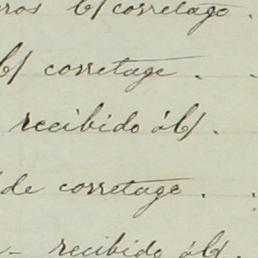 ros b/ corretago.
b/ corretage.
recibido á b/.
de corretage.
recibido á b/.